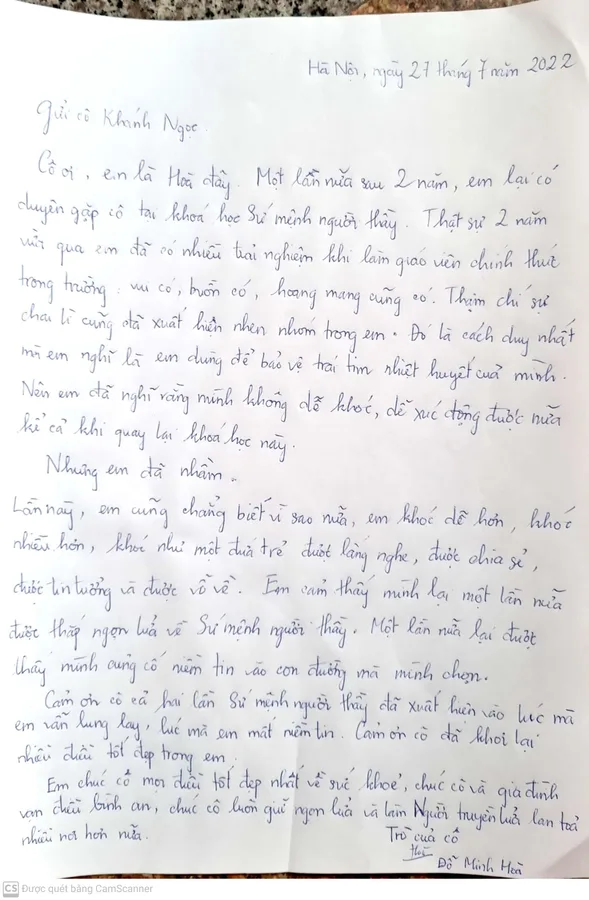 Hà Nội, ngày 27 tháng 7 năm 2022
Gửi cô Khánh Ngọc.
Cô ơi, em là Hoà đây. Một lần nữa sau 2 năm, em lại có
duyên gặp cô tại khoá học Sứ mệnh người thầy. Thật sự 2 năm
vừa qua em đã có nhiều trải nghiệm khi làm giáo viên chính thức
trong trường: vui có, buồn có, hoang mang cũng có. Thậm chí sự
chai lì cũng đã xuất hiện nhen nhóm trong em. Đó là cách duy nhất
mà em nghĩ là em dùng để bảo vệ trái tim nhiệt huyết của mình.
Nên em đã nghĩ rằng mình không dễ khóc, dễ xúc động được nữa
kể cả khi quay lại khoá học này.
Nhưng em đã nhầm.
Lần này, em cũng chẳng biết vì sao nữa, em khóc dễ hơn, khóc
nhiều hơn, khóc như một đứa trẻ được lắng nghe, được chia sẻ,
được tin tưởng và được vỗ về. Em cảm thấy mình lại một lần nữa
được thắp ngọn lửa về Sứ mệnh người thầy. Một lần nữa lại được
thấy mình củng cố niềm tin vào con đường mà mình chọn.
Cảm ơn cô cả hai lần Sứ mệnh người thầy đã xuất hiện vào lúc mà
em vẫn lung lay, lúc mà em mất niềm tin. Cảm ơn cô đã khơi lại
nhiều điều tốt đẹp trong em.
Em chúc cô mọi điều tốt đẹp nhất về sức khoẻ, chúc cô và gia đình
vạn điều bình an, chúc cô luôn giữ ngọn lửa và làm Người truyền lửa lan toả
nhiều nơi hơn nữa.
Trò của cô
Hoà
Đỗ Minh Hoà
CS Được quét bằng CamScanner